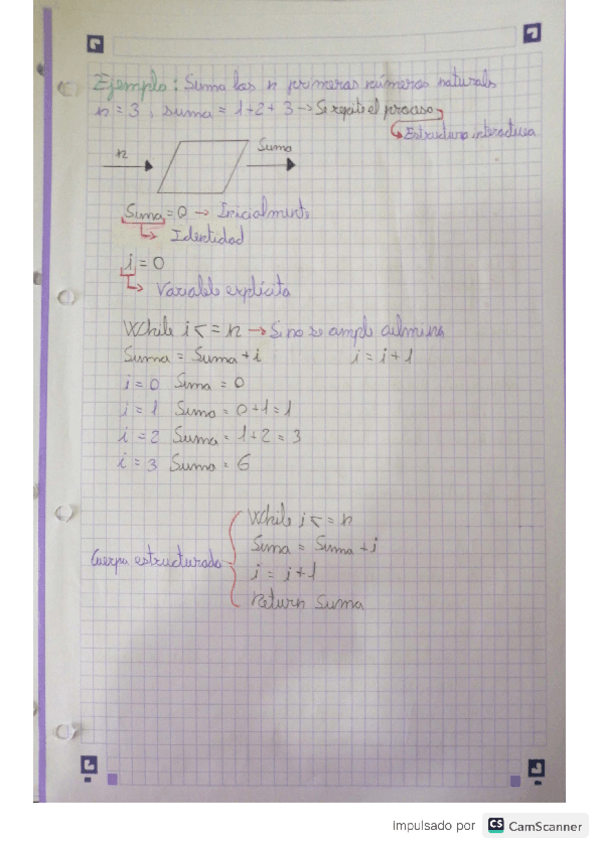 Ejemplo: Suma las n primeros números naturals
n = 3, suma = 1+2+3 → Se repite el proceso
↳ Estructura interactiva
n
Suma
Suma = 0 → Inicialmente
↳ Identidad
i = 0
↳ Variable explícita
While i <= n → Si no se cumple culmina
Suma = Suma + i i = i+1
i = 0 Suma = 0
i = 1 Suma = 0+1=1
i = 2 Suma = 1+2=3
i = 3 Suma = 6
While i <= n
Suma = Suma + i
Cuerpo estructurado
i = i+1
Return Suma
Impulsado por CS CamScanner